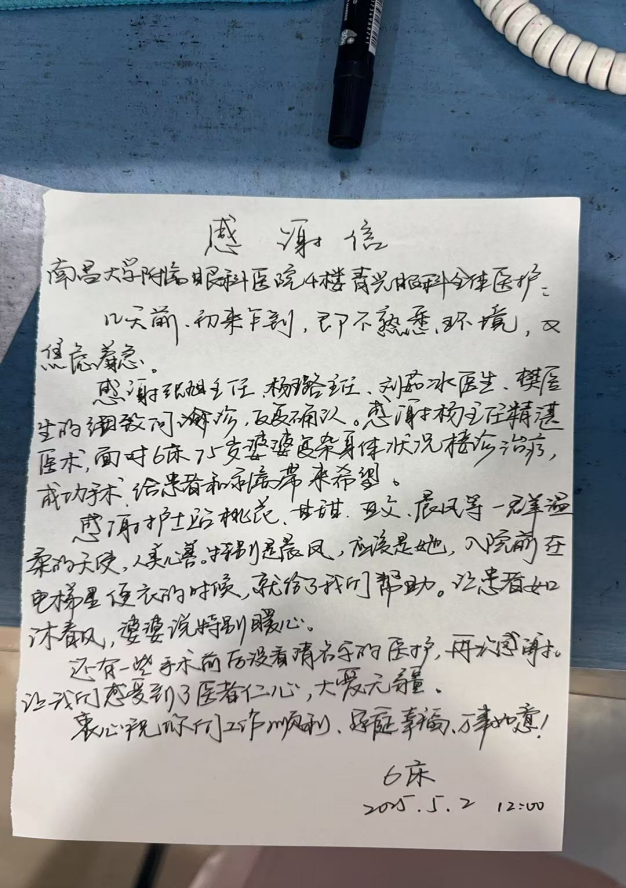 感谢信
南昌大学附属眼科医院4楼青光眼科全体医护:
几天前.初来乍到,即不熟悉环境,又
焦虑着急。
感谢张旭主任、杨璐主任、刘茹冰医生、樊医
生的细致问诊,反复确认。感谢杨主任精湛
医术,面对6床75岁婆婆复杂身体状况接诊治疗,
成功手术.给患者和家属带来希望。
感谢护士站桃花、甘琪、亚文、晨风等一群温
柔的天使,人美心善。特别是晨风,应该是她,入院前在
电梯里便衣的时候,就给了我们帮助。让患者如
沐春风,婆婆说特别暖心。
还有一些手术前后没看清名字的医护,再次感谢。
让我们感受到了医者仁心,大爱无疆。
衷心祝你们工作顺利、家庭幸福、万事如意!
6床
2025.5.2 12:00